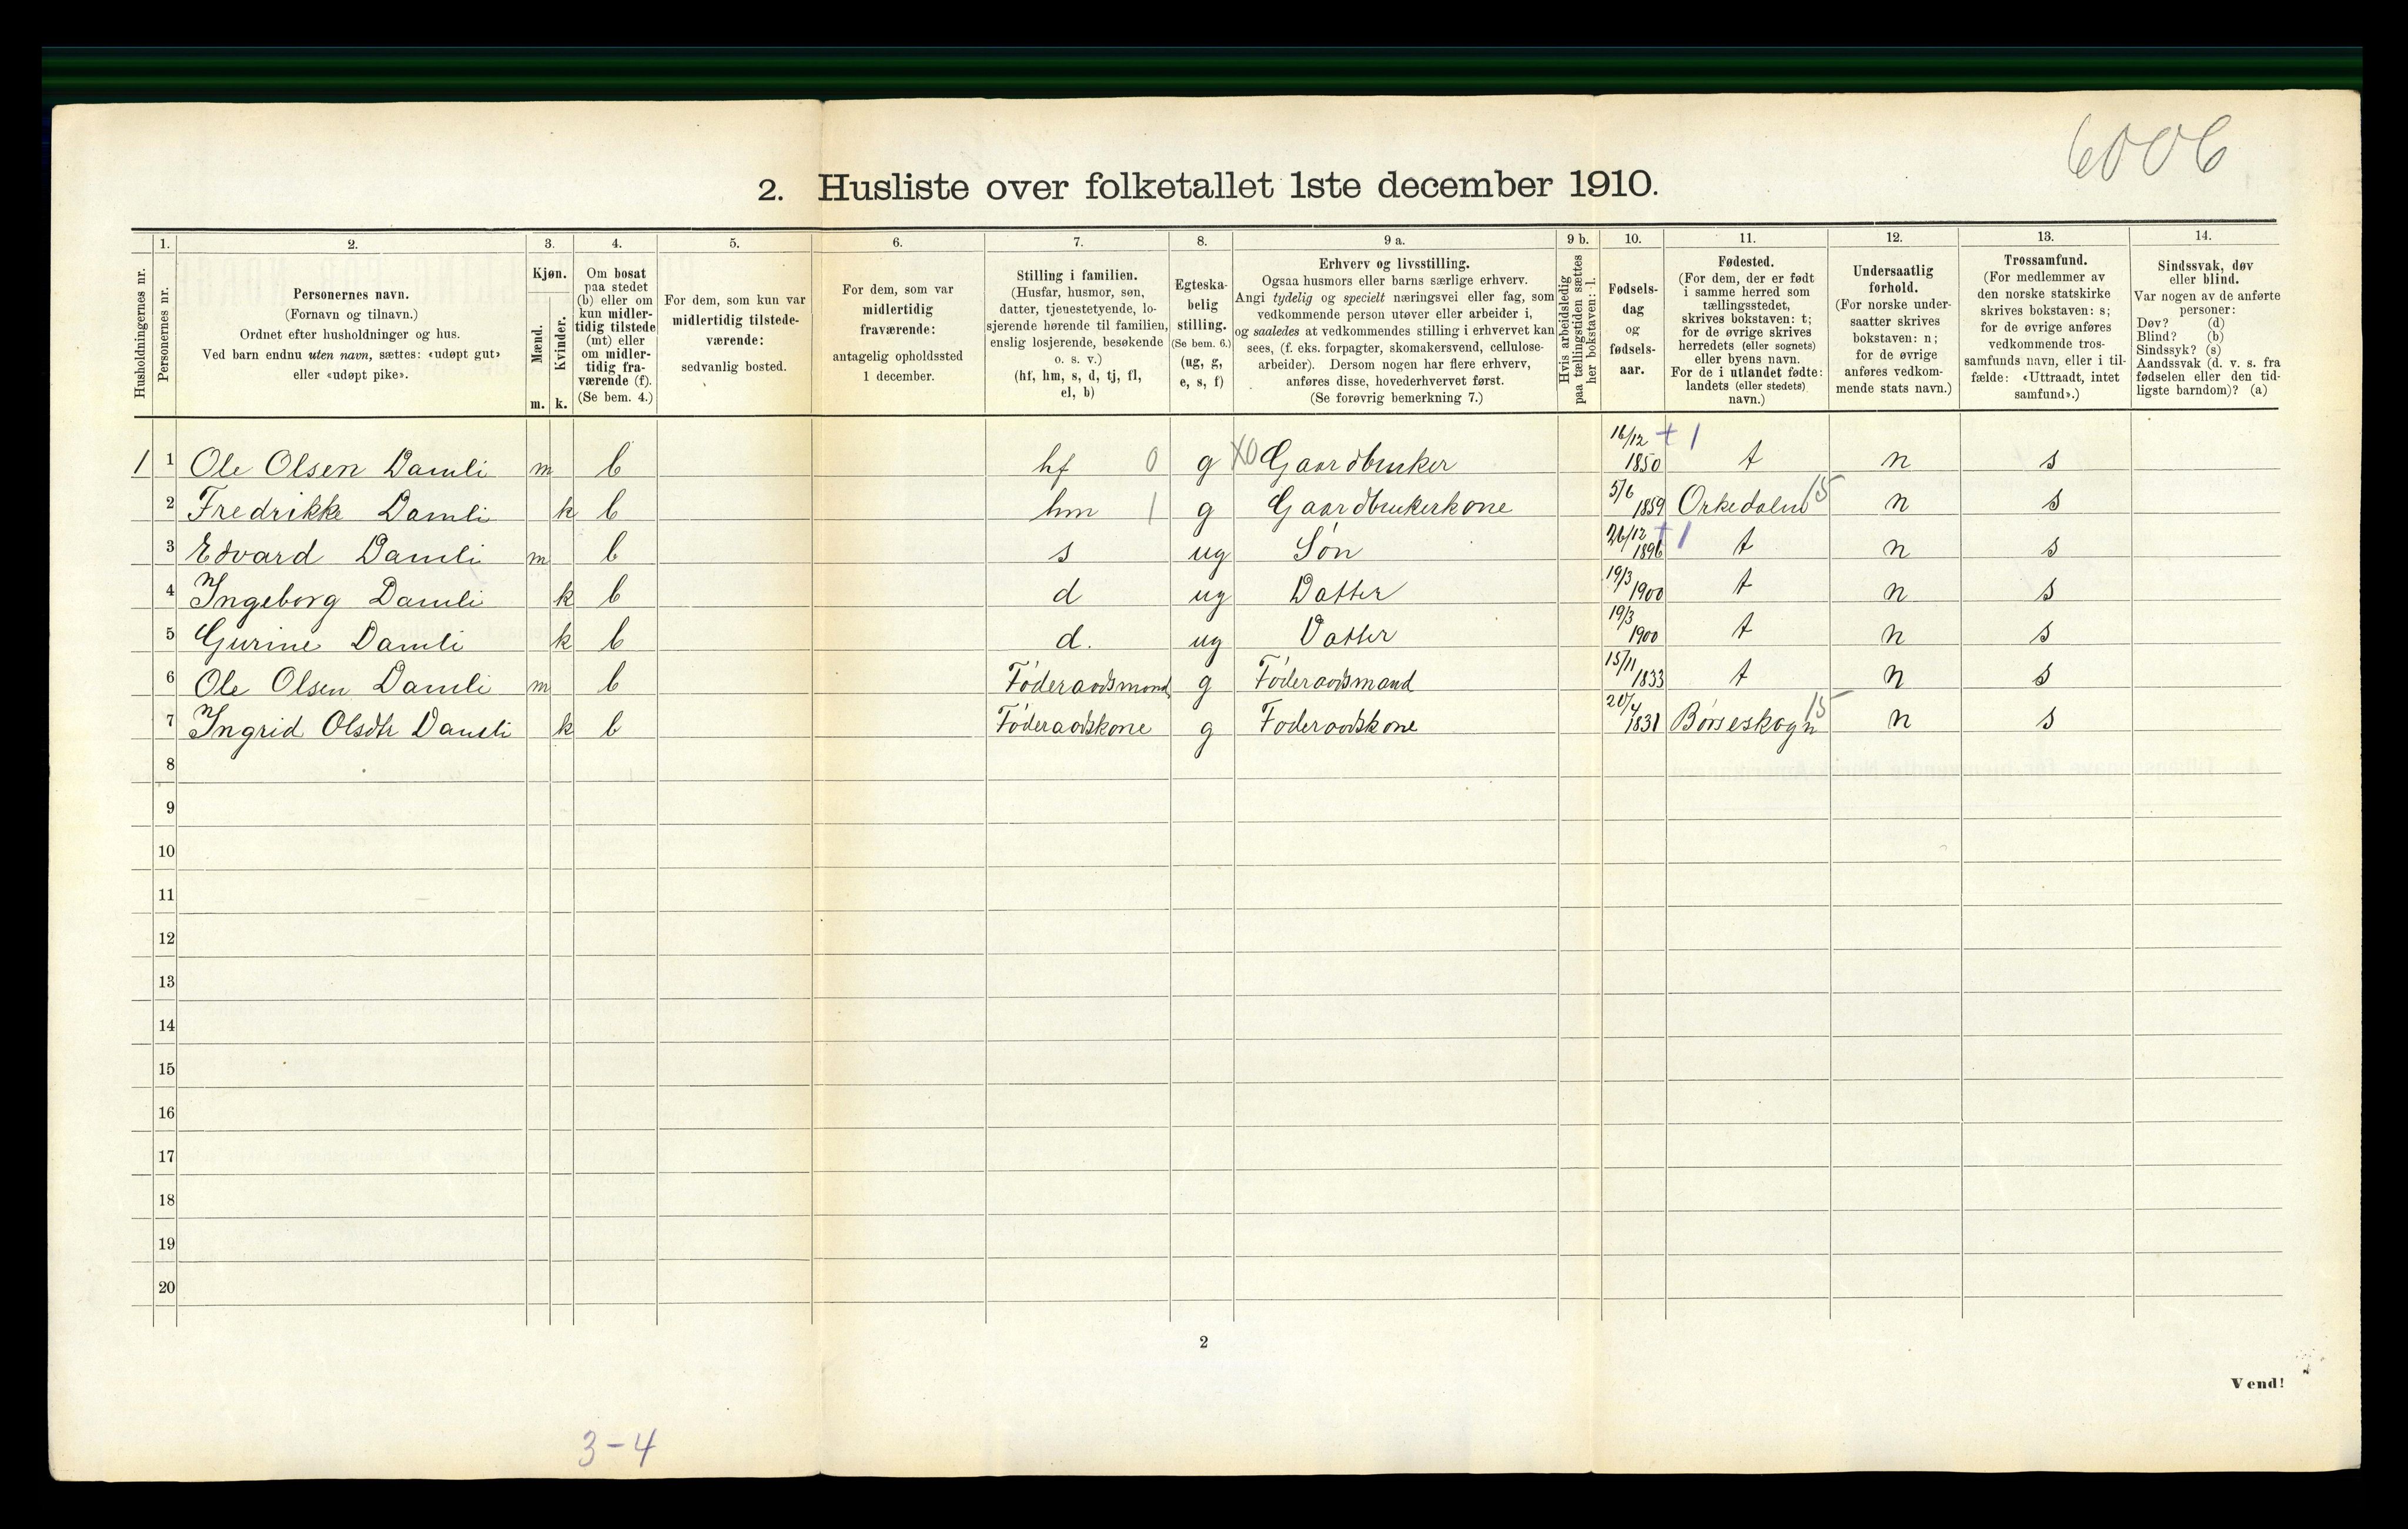 6006
2. Husliste over folketallet 1ste december 1910.
Husholdningernes nr.
1.
Personernes nr.
2.
Personernes navn.
(Fornavn og tilnavn.)
Ordnet efter husholdninger og hus.
Ved barn endnu uten navn, sættes: «udøpt gut»
eller «udøpt pike».
3.
Kjøn.
Mænd.
Kvinder.
m. k.
4.
Om bosat
paa stedet
(b) eller om
kun midler-
tidig tilstede
(mt) eller
om midler-
tidig fra-
værende (f).
(Se bem. 4.)
5.
For dem, som kun var
midlertidig tilstede-
værende:
sedvanlig bosted.
6.
For dem, som var
midlertidig
fraværende:
antagelig opholdssted
1 december.
7.
Stilling i familien.
(Husfar, husmor, søn,
datter, tjenestetyende, lo-
sjerende hørende til familien,
enslig losjerende, besøkende
o. s. v.)
(hf, hm, s, d, tj, fl,
el, b)
8.
Egteska-
belig
stilling.
(Se bem. 6.)
(ug, g,
e, s, f)
9 a.
Erhverv og livsstilling.
Ogsaa husmors eller barns særlige erhverv.
Angi tydelig og specielt næringsvei eller fag, som
vedkommende person utøver eller arbeider i,
og saaledes at vedkommendes stilling i erhvervet kan
sees, (f. eks. forpagter, skomakersvend, cellulose-
arbeider). Dersom nogen har flere erhverv,
anføres disse, hovederhvervet først.
(Se forøvrig bemerkning 7.)
9 b.
Hvis arbeidsledig
paa tællingstiden sættes
her bokstaven: l.
10.
Fødsels-
dag
og
fødsels-
aar.
11.
Fødested.
(For dem, der er født
i samme herred som
tællingsstedet,
skrives bokstaven: t;
for de øvrige skrives
herredets (eller sognets)
eller byens navn.
For de i utlandet fødte:
landets (eller stedets)
navn.)
12.
Undersaatlig
forhold.
(For norske under-
saatter skrives
bokstaven: n;
for de øvrige
anføres vedkom-
mende stats navn.)
13.
Trossamfund.
(For medlemmer av
den norske statskirke
skrives bokstaven: s;
for de øvrige anføres
vedkommende tros-
samfunds navn, eller i til-
fælde: «Uttraadt, intet
samfund».)
14.
Sindssvak, døv
eller blind.
Var nogen av de anførte
personer:
Døv? (d)
Blind? (b)
Sindssyk? (s)
Aandssvak (d. v. s. fra
fødselen eller den tid-
ligste barndom)? (a)
1 1 Ole Olsen Damli m b hf 0 g X0 Gaardbruker 16/12 1850 + 1 t n s
2 Fredrikke Damli k b hm 1 g Gaardbrukerkone 5/6 1859 Orkedalen 15 n s
3 Edvard Damli m b s ug Søn 26/12 1896 + 1 t n s
4 Ingeborg Damli k b d ug Datter 19/3 1900 t n s
5 Gurine Damli k b d. ug Datter 19/3 1900 t n s
6 Ole Olsen Damli m b Føderaadsmand g Føderaadsmand 15/11 1833 t n s
7 Ingrid Olsdtr Damli k b Føderaadskone g Føderaadskone 20/4 1831 Børseskogn 15 n s
8
9
10
11
12
13
14
15
16
17
18
19
20
2
Vend!
3-4